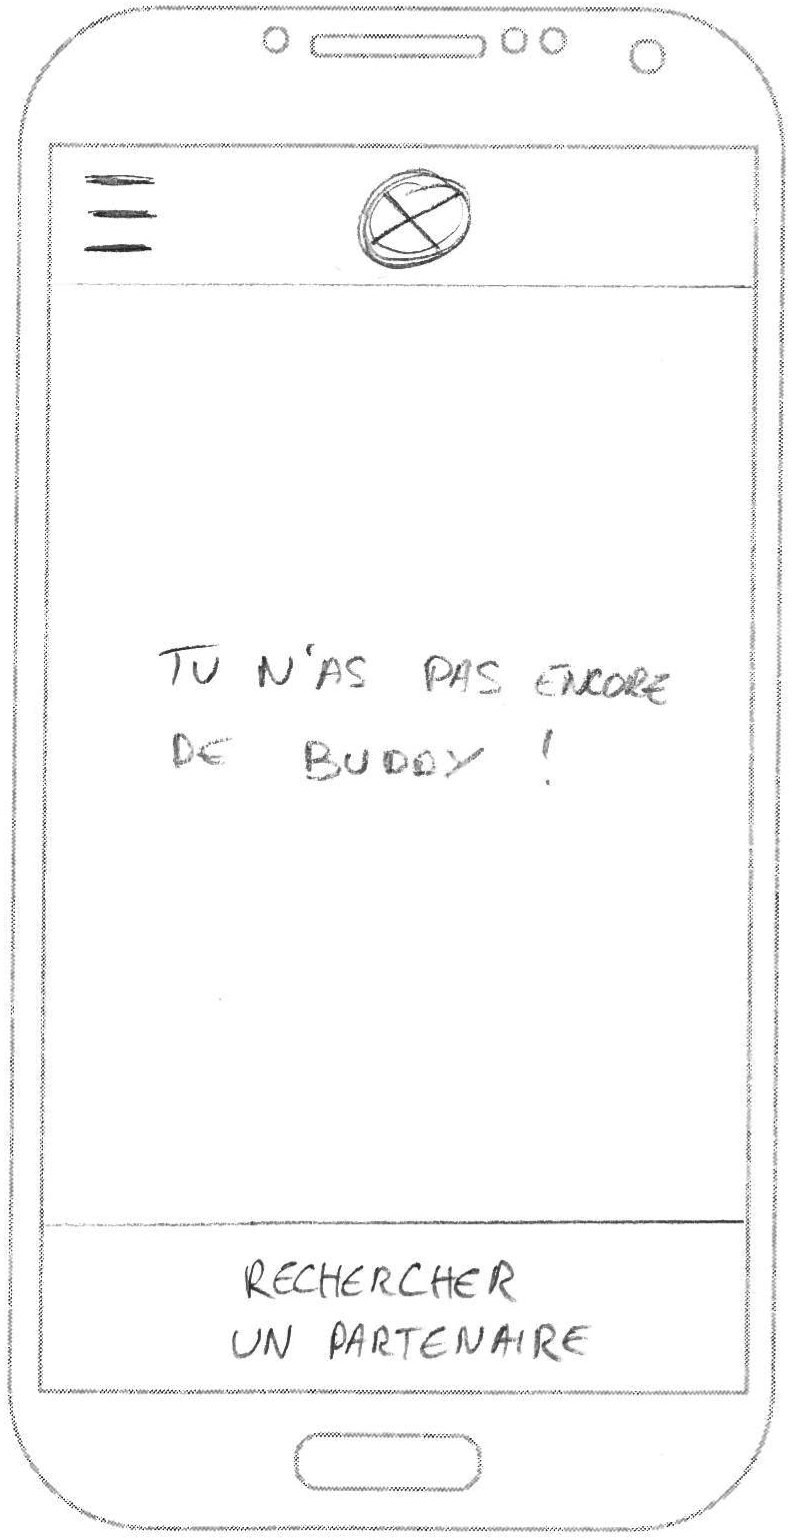 TU N'AS PAS ENCORE
DE BUDDY !
RECHERCHER
UN PARTENAIRE